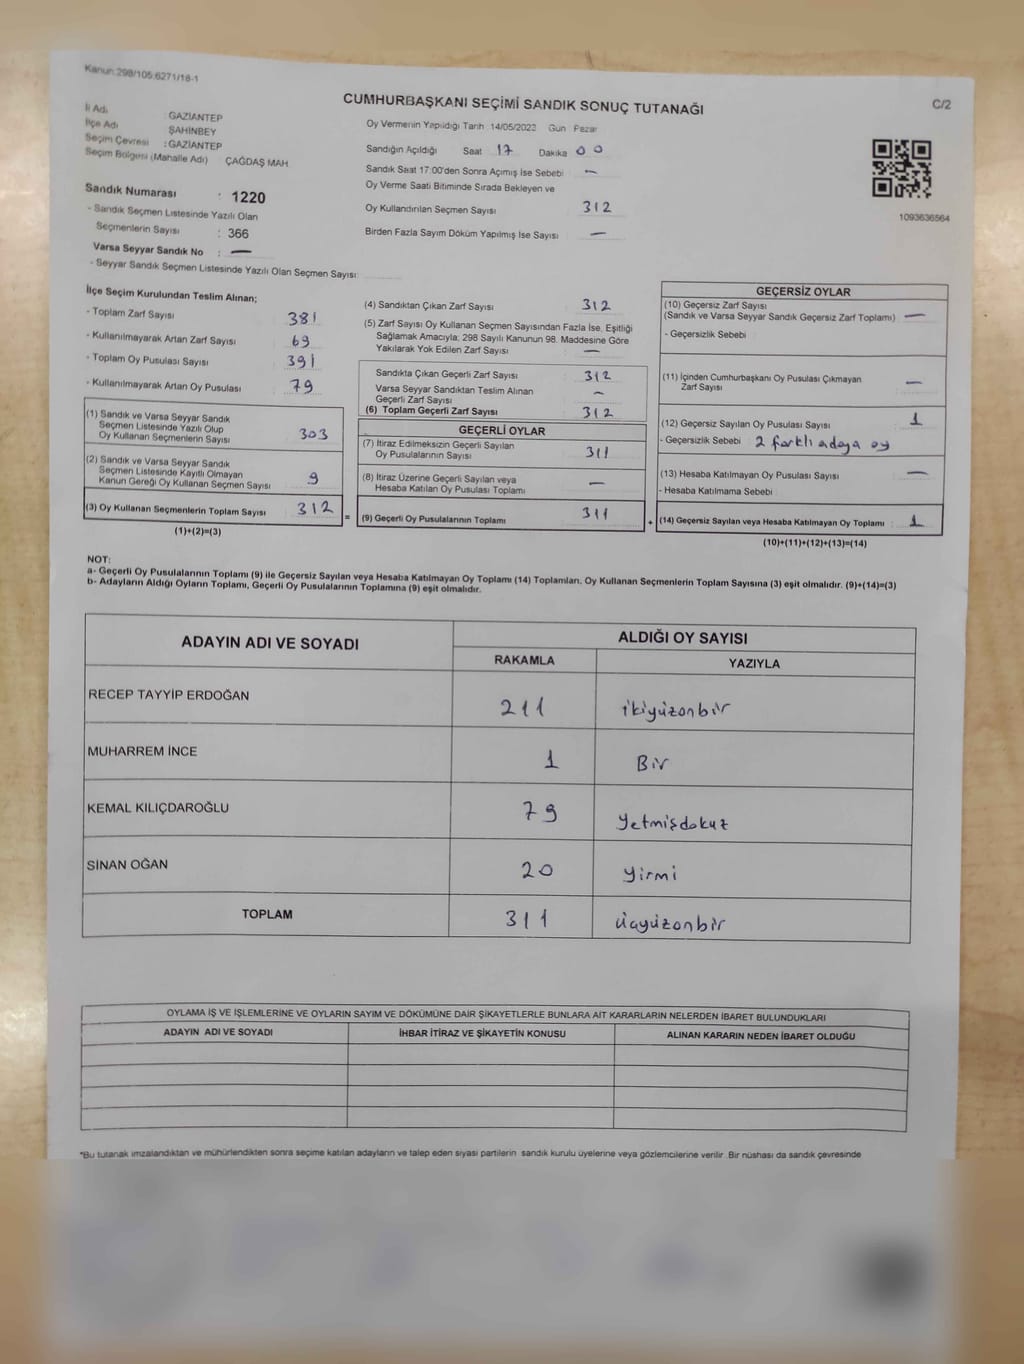 Kanun:298/105;6271/18-1
C/2
CUMHURBAŞKANI SEÇİMİ SANDIK SONUÇ TUTANAĞI
İl Adı : GAZİANTEP
İlçe Adı : ŞAHİNBEY
Seçim Çevresi : GAZİANTEP
Seçim Bölgesi (Mahalle Adı) ÇAĞDAŞ MAH
Sandık Numarası : 1220
- Sandık Seçmen Listesinde Yazılı Olan
Seçmenlerin Sayısı : 366
Varsa Seyyar Sandık No : —
- Seyyar Sandık Seçmen Listesinde Yazılı Olan Seçmen Sayısı:
Oy Vermenin Yapıldığı Tarih :14/05/2023 Gün : Pazar
Sandığın Açıldığı Saat 17 Dakika 00
Sandık Saat 17:00'den Sonra Açımış İse Sebebi —
Oy Verme Saati Bitiminde Sırada Bekleyen ve
Oy Kullandırılan Seçmen Sayısı 312
Birden Fazla Sayım Döküm Yapılmış İse Sayısı —
1093636564
İlçe Seçim Kurulundan Teslim Alınan;
- Toplam Zarf Sayısı 381
- Kullanılmayarak Artan Zarf Sayısı 69
- Toplam Oy Pusulası Sayısı 391
- Kullanılmayarak Artan Oy Pusulası 79
(1) Sandık ve Varsa Seyyar Sandık
Seçmen Listesinde Yazılı Olup
Oy Kullanan Seçmenlerin Sayısı 303
(2) Sandık ve Varsa Seyyar Sandık
Seçmen Listesinde Kayıtlı Olmayan
Kanun Gereği Oy Kullanan Seçmen Sayısı 9
(3) Oy Kullanan Seçmenlerin Toplam Sayısı 312
(1)+(2)=(3)
(4) Sandıktan Çıkan Zarf Sayısı 312
(5) Zarf Sayısı Oy Kullanan Seçmen Sayısından Fazla İse, Eşitliği
Sağlamak Amacıyla; 298 Sayılı Kanunun 98. Maddesine Göre
Yakılarak Yok Edilen Zarf Sayısı : —
Sandıkta Çıkan Geçerli Zarf Sayısı 312
Varsa Seyyar Sandıktan Teslim Alınan
Geçerli Zarf Sayısı —
(6) Toplam Geçerli Zarf Sayısı 312
GEÇERLİ OYLAR
(7) İtiraz Edilmeksizin Geçerli Sayılan
Oy Pusulalarının Sayısı 311
(8) İtiraz Üzerine Geçerli Sayılan veya
Hesaba Katılan Oy Pusulası Toplamı —
= (9) Geçerli Oy Pusulalarının Toplamı 311 +
GEÇERSİZ OYLAR
(10) Geçersiz Zarf Sayısı
(Sandık ve Varsa Seyyar Sandık Geçersiz Zarf Toplamı) —
- Geçersizlik Sebebi
(11) İçinden Cumhurbaşkanı Oy Pusulası Çıkmayan
Zarf Sayısı —
(12) Geçersiz Sayılan Oy Pusulası Sayısı 1
- Geçersizlik Sebebi : 2 farklı adaya oy
(13) Hesaba Katılmayan Oy Pusulası Sayısı —
- Hesaba Katılmama Sebebi
(14) Geçersiz Sayılan veya Hesaba Katılmayan Oy Toplamı : 1
(10)+(11)+(12)+(13)=(14)
NOT:
a- Geçerli Oy Pusulalarının Toplamı (9) ile Geçersiz Sayılan veya Hesaba Katılmayan Oy Toplamı (14) Toplamları, Oy Kullanan Seçmenlerin Toplam Sayısına (3) eşit olmalıdır. (9)+(14)=(3)
b- Adayların Aldığı Oyların Toplamı, Geçerli Oy Pusulalarının Toplamına (9) eşit olmalıdır.
ADAYIN ADI VE SOYADI ALDIĞI OY SAYISI
RAKAMLA YAZIYLA
RECEP TAYYİP ERDOĞAN 211 ikiyüzonbir
MUHARREM İNCE 1 Bir
KEMAL KILIÇDAROĞLU 79 Yetmişdokuz
SİNAN OĞAN 20 Yirmi
TOPLAM 311 üçyüzonbir
OYLAMA İŞ VE İŞLEMLERİNE VE OYLARIN SAYIM VE DÖKÜMÜNE DAİR ŞİKAYETLERLE BUNLARA AİT KARARLARIN NELERDEN İBARET BULUNDUKLARI
ADAYIN ADI VE SOYADI İHBAR İTİRAZ VE ŞİKAYETİN KONUSU ALINAN KARARIN NEDEN İBARET OLDUĞU
*Bu tutanak imzalandıktan ve mühürlendikten sonra seçime katılan adayların ve talep eden siyasi partilerin sandık kurulu üyelerine veya gözlemcilerine verilir. Bir nüshası da sandık çevresinde